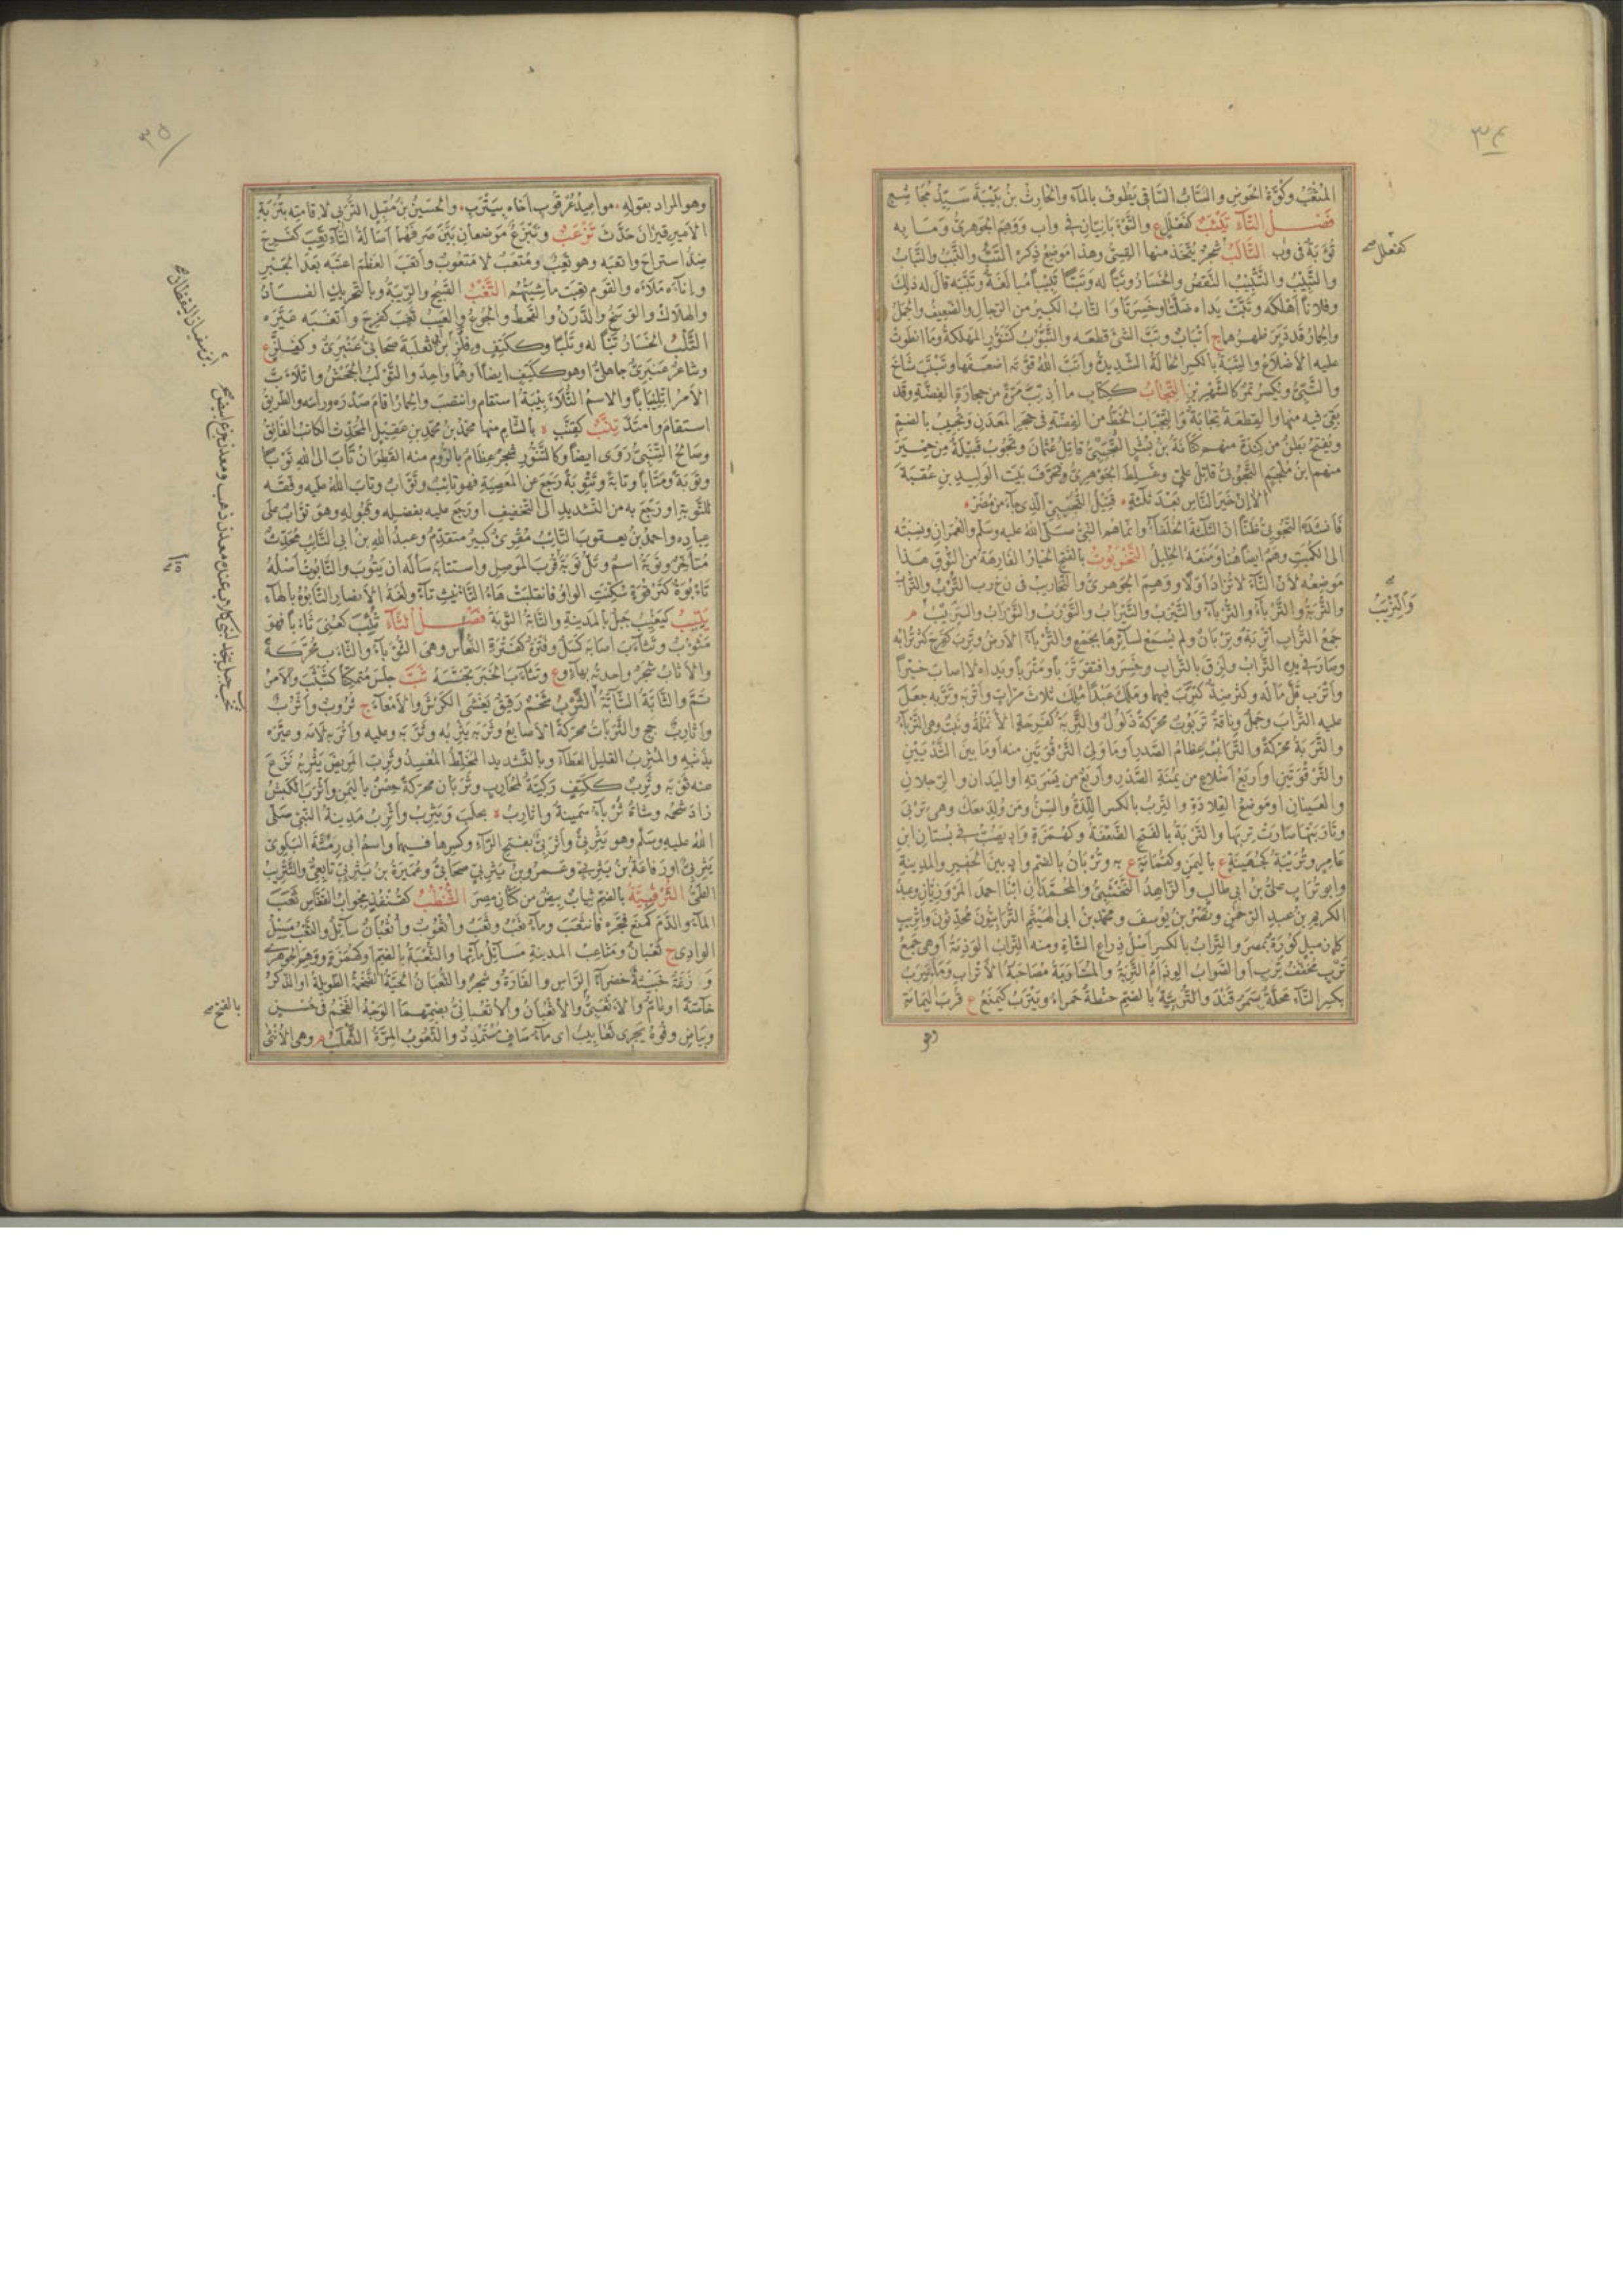 ٣٤
المثعب وكوة الحوض والساب الساقي يطوف بالماء والحارث بن
فصل التاء كفعلل ع والتوءبانيان في واب ووهم الجوهري وما به
في وب التألب شجر يتخذ منها القسي وهذا موضع ذكره التب والتبب والتباب
والتبيب والتتبيب النقص والخسار وتبا له وتبا تبيبا مبالغة وتببه قال له ذلك
وفلانا اهلكه وتبت يداه ضلتا وخسرتا والتاب الكبير من الرجال والضعيف والجمل
والحمار قد دبر ظهرهما ج اتباب وتب الشئ قطعه والتبوب كتنور المهلكة وما انطوت
عليه الاضلاع والتبة بالكسر الحالة الشديدة واتب الله قوته اضعفها وتبتب شاخ
والتبي ويكسر تمر كالشهريز التجاب ككتاب ما اذيب مرة من حجارة الفضة وقد
بقي فيه منها والقطعة تجابة والتجباب الخط من الفضة في حجر المعدن وتجيب بالضم
ويفتح بطن من كندة منهم كنانة بن بشر التجيبي قاتل عثمان وتجوب قبيلة من حمير
منهم ابن ملجم التجوبي قاتل علي وغلط الجوهري فحرف بيت الوليد بن عقبة
الا ان خير الناس بعد ثلثة قتيل التجيبي الذي جاء من مضر
فانشده التجوبي ظنا ان الثلثة الخلفاء وانما هم النبي صلى الله عليه وسلم والعمران ونسبته
الى الكميت وهم ايضا هنا وضعه الخليل التخربوت بالفتح الخيار الفارهة من النوق هذا
موضعه لان التاء لا تزاد اولا ووهم الجوهري والتخاريب في ن خ رب الترب والتراب
والتربة والترباء والترباء والتيرب والتيراب والتورب والتوراب والتريب م
جمع التراب اتربة وتربان ولم يسمع لسائرها بجمع والترباء الارض وترب كفرح كثر ترابه
وصار في يده التراب ولزق بالتراب وخسر وافتقر تربا ومتربا ويداه لا اصاب خيرا
واترب قل ماله وكثر ضد كترب فيهما وملك عبدا ملك ثلاث مرات واتربه وتربه جعل
عليه التراب وجمل وناقة تربوت محركة ذلول والتربة كفرحة الانملة ونبت وهي الترباء
والتربة محركة والترائب عظام الصدر او ما ولي الترقوتين منه او ما بين الثديين
والترقوتين او اربع اضلاع من يمنة الصدر واربع من يسرته او اليدان والرجلان
والعينان او موضع القلادة والترب بالكسر اللدة والسن ومن ولد معك وهي تربي
وتاربتها صارت تربها والتربة بالفتح الضعفة وكهمزة واد يصب في بستان ابن
عامر وتربية كجهينة ع باليمن وكقمامة ع به وتربان بالضم واد بين الحفير والمدينة
وابو تراب علي بن ابي طالب والزاهد النخشبي والمحمدان ابنا احمد المروزيان وعبد
الكريم بن عبد الرحمن ونصر بن يوسف ومحمد بن ابي الهيثم الترابيون محدثون واتريب
كازميل كورة بمصر والتراب بالكسر اصل ذراع الشاة ومنه التراب الوذمة او هي جمع
ترب مخفف ترب او الصواب الوذام التربة والمتاربة مصاحبة الاتراب وما تيرب
بكسر التاء محلة بسمرقند والتربية بالضم حنطة حمراء ويترب كيمنع ع قرب اليمامة
وهو
كفعلل صح
والتريب
٣٥
وهو المراد بقوله مواعيد عرقوب اخاه بيترب والحسين بن مقبل التربي لاقامته بتربة
الامير قيزان حدث ترعب وتبرع موضعان بين صرفهما اصالة التاء تعب كفرح
ضد استراح واتعبه وهو تعب ومتعب لا متعوب واتعب العظم اعتبه بعد الجبر
واناءه ملاءه والقوم تعبت ماشيتهم التغب القبيح والريبة وبالتحريك الفساد
والهلاك والوسخ والدرن والقحط والجوع والعيب تغب كفرح واتغبه غيره
التلب الخسار تبا له وتلبا وككتف وفلز بن ثعلبة صحابي عنبري وكفلز ع
وشاعر عنبري جاهلي او هو ككتف ايضا او هما واحد والتولب الجحش واتلاب
الامر اتلئبابا والاسم التلأبيبة استقام وانتصب والحمار اقام صدره ورأسه والطريق
استقام وامتد تنب كقنب ة بالشام منها محمد بن محمد بن عقيل المحدث الكاتب الفائق
وصالح التنبي روى ايضا وكالتنور شجر عظام بالروم منه القطران تاب الى الله توبا
وتوبة ومتابا وتابة وتتوبة رجع عن المعصية فهو تائب وتواب وتاب الله عليه وفقه
للتوبة او رجع به من التشديد الى التخفيف او رجع عليه بفضله وقبوله وهو تواب على
عباده واحمد بن يعقوب التائب مقرئ كبير متقدم وعبد الله بن ابي التائب محدث
متأخر وتوبة اسم وتل توبة قرب الموصل واستتابه سأله ان يتوب والتابوت اصله
تابوة كترقوة سكنت الواو فانقلبت هاء التانيث تاء ولغة الانصار التابوه بالهاء
يتيب كيغيب جبل بالمدينة والتابة التوبة فصل الثاء ثئب كعني ثأبا فهو
مثؤوب وتثاءب اصابه كسل وفترة كفترة النعاس وهي الثؤباء والثأب محركة
والاثاب شجر واحدته بهاء وع وتثاءب الخبر تجسسه ثب جلس متمكنا كثبثب والامر
تم والثابة الشابة الثرب شحم رقيق يغشى الكرش والامعاء ج ثروب واثرب
واثارب جج والثربات محركة الاصابع وثربه يثربه وثربه وعليه واثربه لامه وعيره
بذنبه والمثرب القليل العطاء وبالتشديد المخلط المفسد وثرب المريض يثربه نزع
عنه ثوبه وثرب ككتف ركية لمحارب وثربان محركة حصن باليمن واثرب الكبش
زاد شحمه وشاة ثرباء سمينة واثارب ة بحلب ويثرب واثرب مدينة النبي صلى
الله عليه وسلم وهو يثربي واثربي بفتح الراء وكسرها فيهما واسم ابي رمثة البلوي
يثربي او رفاعة بن يثربي وعمرو بن يثربي صحابي وعميرة بن يثربي تابعي والتثريب
الطي الثرقبية بالضم ثياب بيض من كتان مصر الثنطب كقنفذ مجواب القفاص ثعب
الماء والدم كمنع فجره فانثعب وماء ثعب وثعب واثعوب واثعبان سائل والثعب مسيل
الوادي ج ثعبان ومثاعب المدينة مسائل مائها والثعبة بالضم او كهمزة ووهم الجوهري
وزغة خبيثة خضراء الرأس والفارة وشجر والثعبان الحية الضخمة الطويلة او الذكر
خاصة او عام والاثعبي والاثعبان والاثعباني بضمهما الوجه الفخم في حسن
وبياض وفوه يجري ثعابيب اي ماء صاف متمدد والثعوب المرة الثعلب م وهي الانثى
بالفتح صح